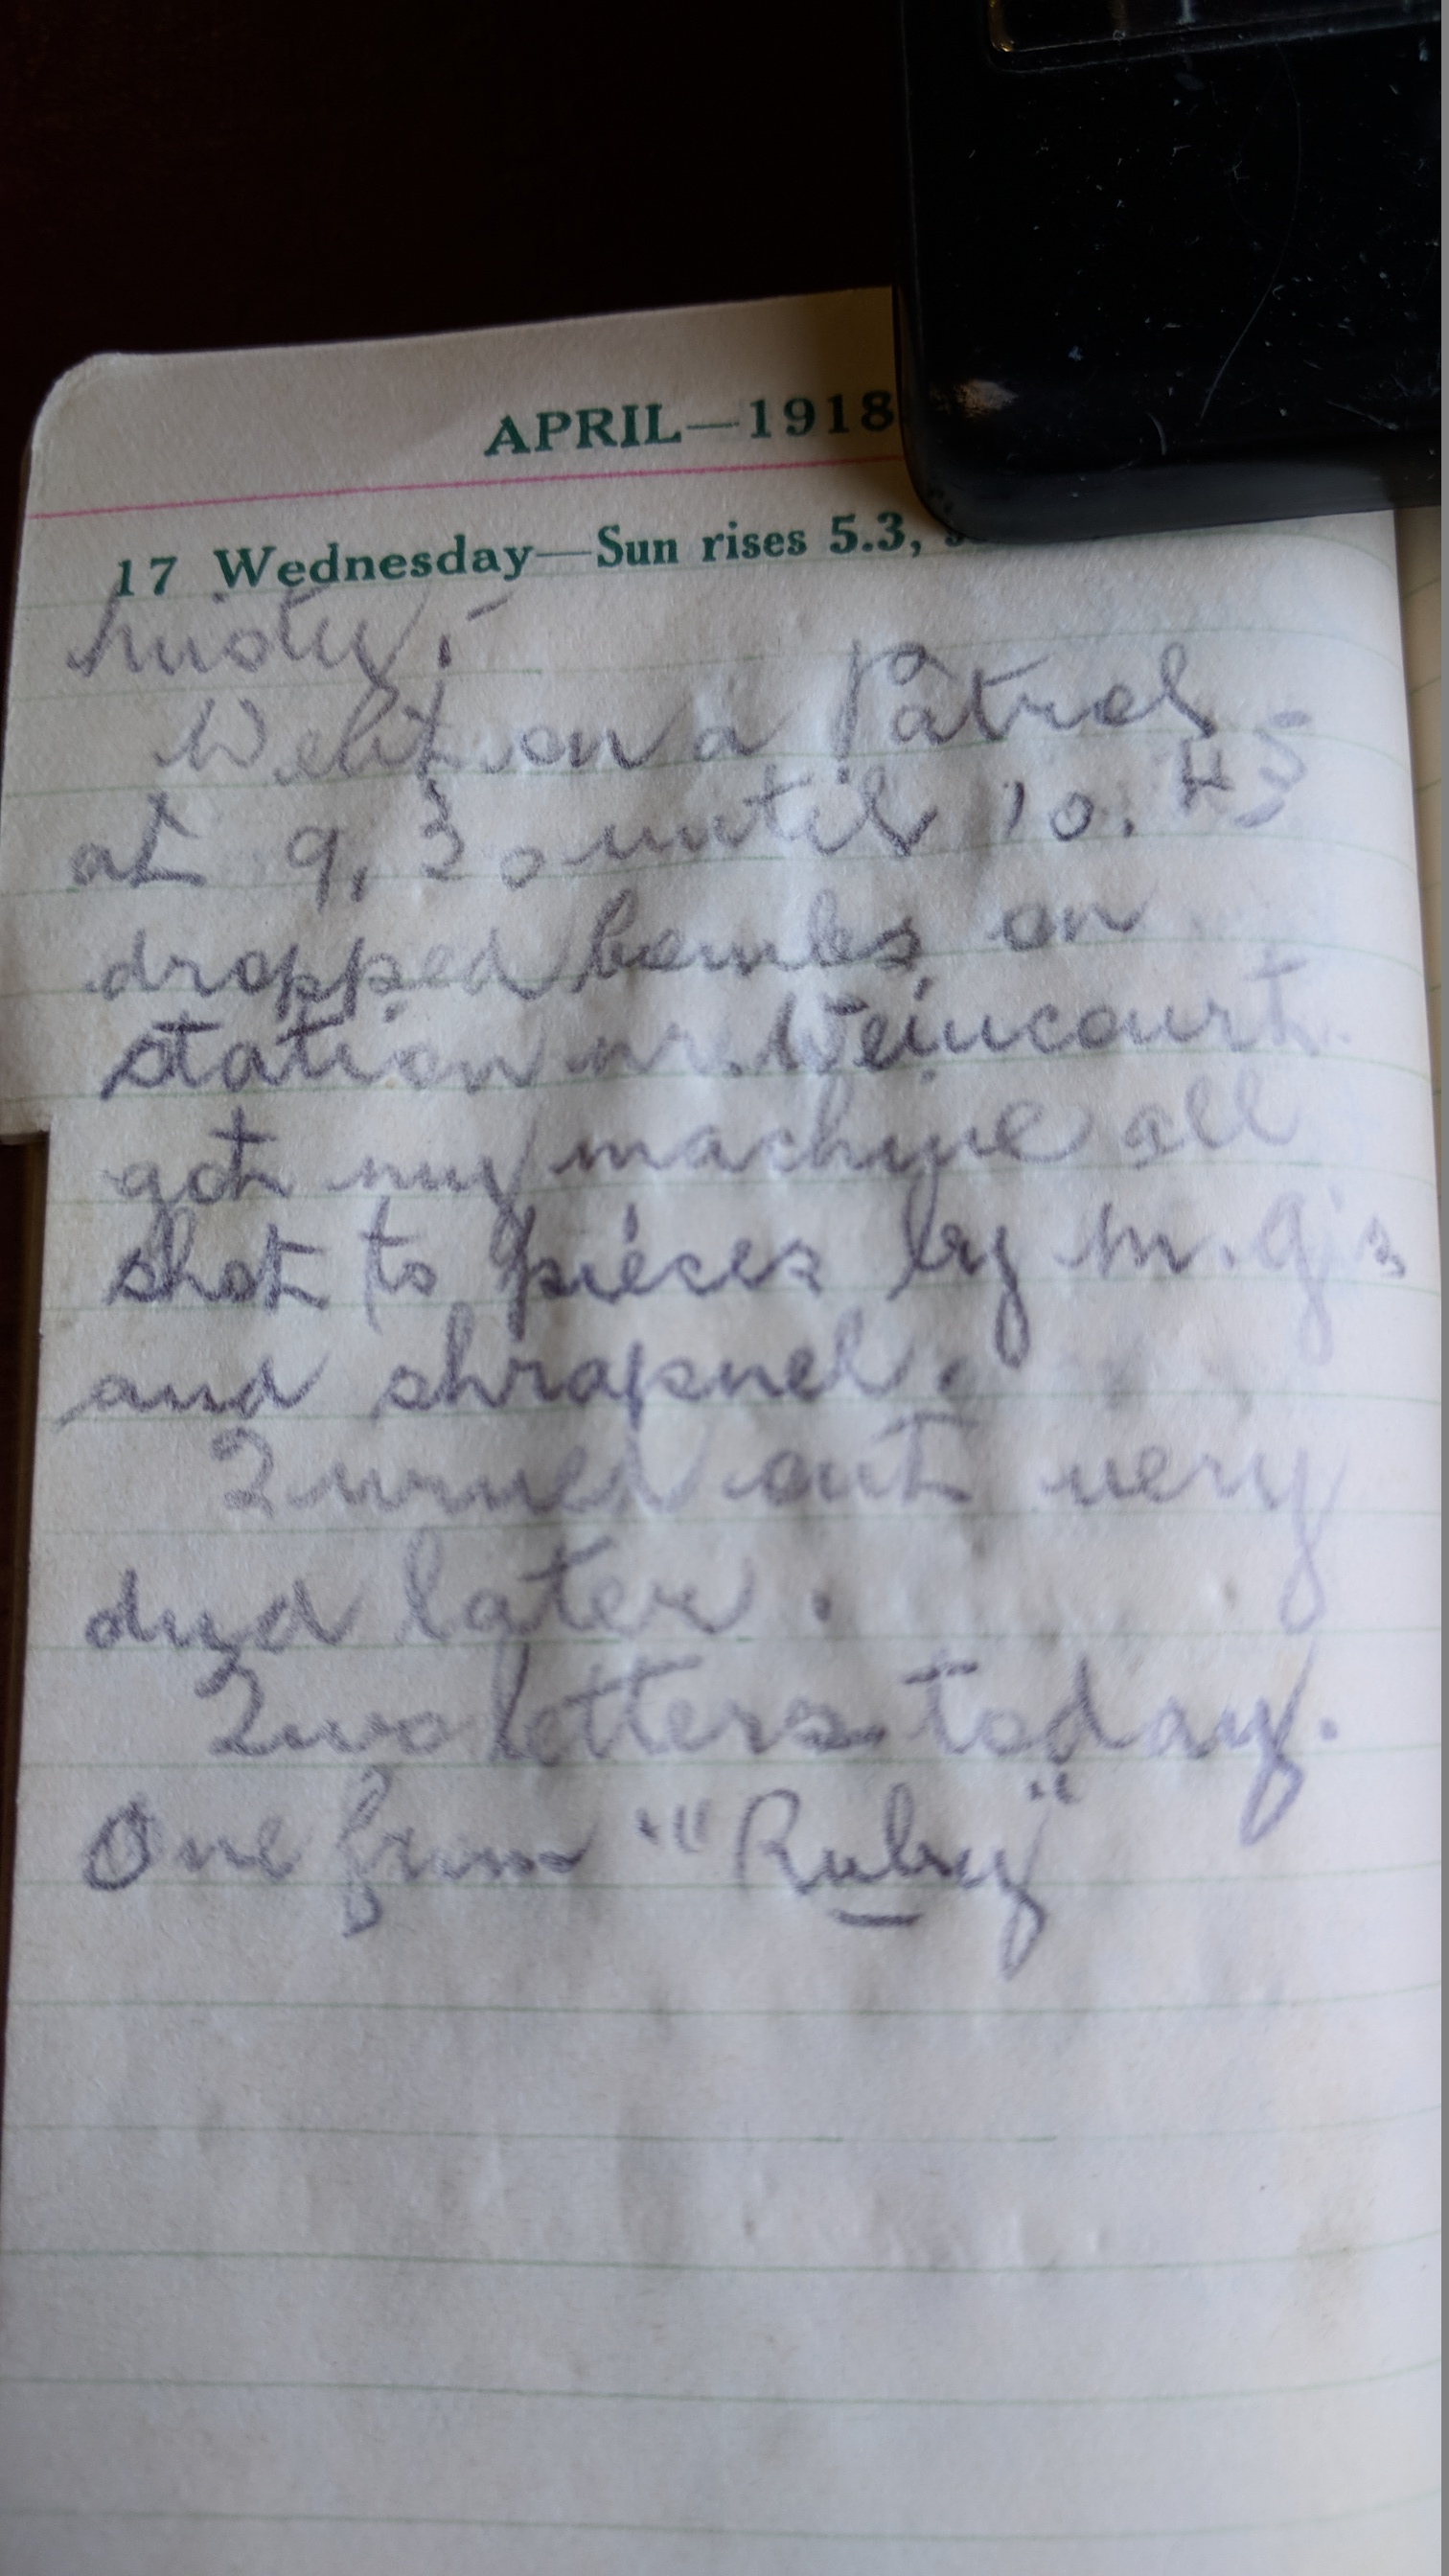 APRIL—1918
17 Wednesday—Sun rises 5.3,
Misty. –
Went on a Patrol
at 9,30 until 10.45
dropped bombs on
station nr. Weincourt.
got my machine all
shot to pieces by M.G's
and shrapnel.
Turned out very
dud later.
Two letters today.
One from "Ruby"